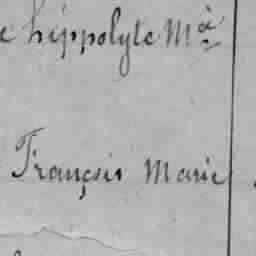 e hippolyte Mᵃ
François Marie